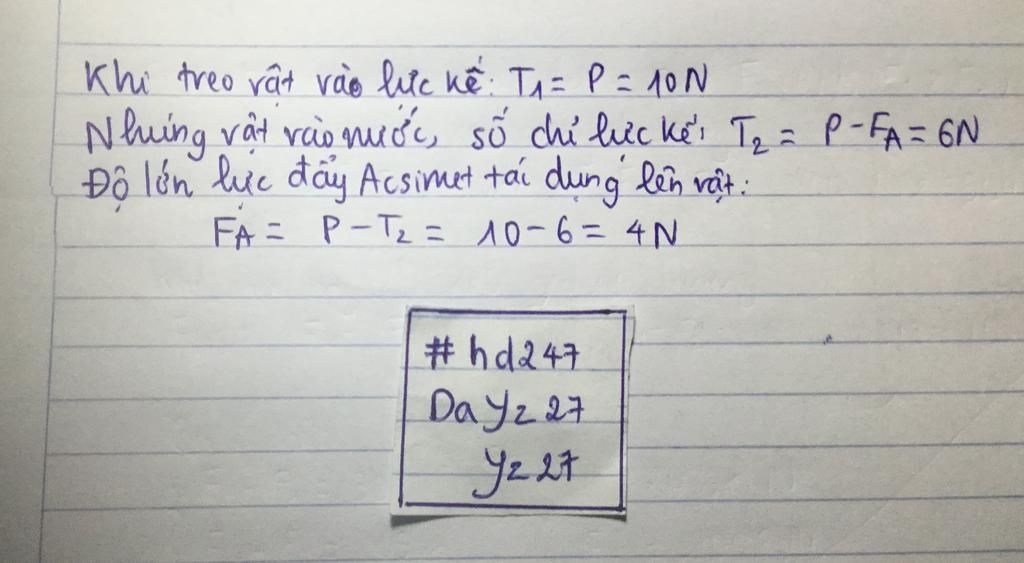 Khi treo vật vào lực kế: T1 = P = 10N
Nhúng vật vào nước, số chỉ lực kế: T2 = P - FA = 6N
Độ lớn lực đẩy Acsimet tác dụng lên vật:
FA = P - T2 = 10 - 6 = 4N
#hd247
Dayz27
yz27